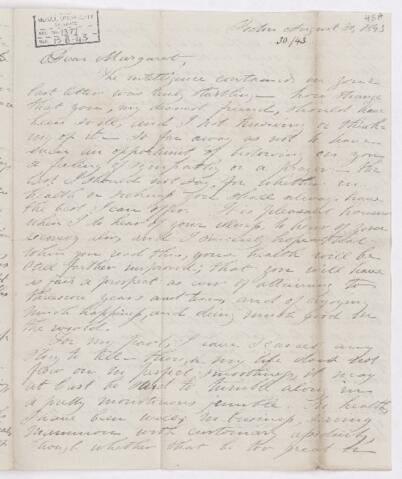 458
Boston August 30, 1843
30/43
Dear Margaret,
The intelligence contained in your
last letter was truly startling — how strange
that you, my dearest friend, should have
been so ill, and I not knowing or think-
ing of it — so far away as not to have
even an opportunity of bestowing on you
a feeling of sympathy or a prayer — the
I should not say, for whether in
health or sickness you shall always have
the best I can offer. It is pleasant however
when I to hear of your illness, to hear of your
recovery also, and I sincerely hope that
when you read this, your health will be
still further improved; that you will have
as fair a prospect as ever of attaining to
threescore years and ten, and of enjoying
much happiness, and doing much good in
the world.
For my part, I have scarcely any
thing to tell — though my life does not
flow on in perfect smoothness, it may
at least be said to tumble along in
a pretty monotonous jumble. In health
I have been well; in business, having
with customary
though whether that be too great or